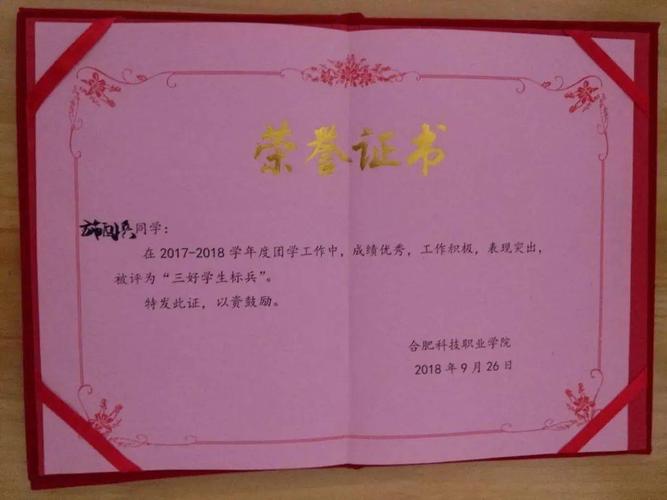 荣誉证书
同学：
在2017-2018学年度团学工作中，成绩优秀，工作积极，表现突出，
被评为“三好学生标兵”。
特发此证，以资鼓励。
合肥科技职业学院
2018年9月26日